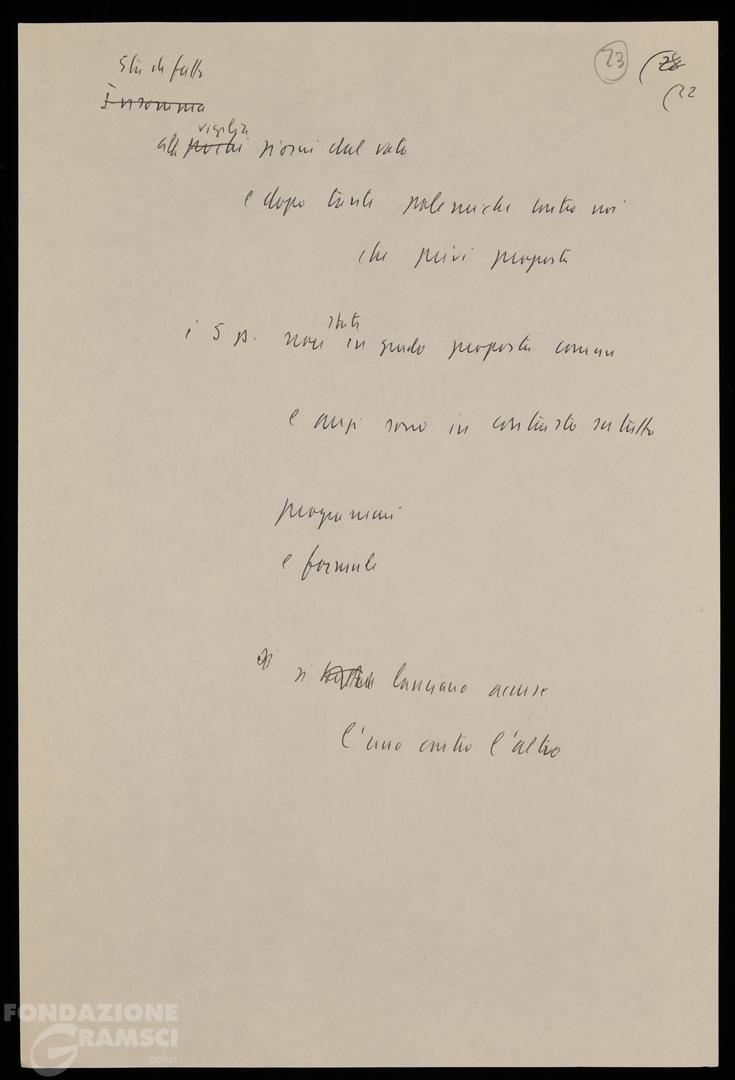 23 (28
(22
Sta di fatto
Insomma
vigilia
alla pochi giorni dal voto
e dopo tante polemiche contro noi
che privi proposte
stati
i 5 p. non in grado proposta comune
e anzi sono in contrasto su tutto
programmi
e formule
si lanciano accuse
l'uno contro l'altro
FONDAZIONE
GRAMSCI
onlus